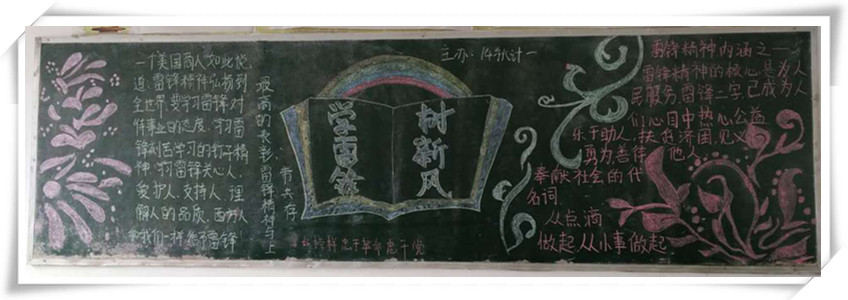 一个美国商人如此说
道:雷锋精神弘扬到
全世界.要学习雷锋对
待事业的态度.学习雷
锋刻苦学习的钉子精
神.学习雷锋关心人.
爱护人.支持人.理
解人的品质.西方人
和我们一样离不开雷锋!
最高的表彰.雷锋精神与上
帝共存
主办:14预计一
学雷锋
树新风
雷锋精神内涵之一
雷锋精神的核心是为人
民服务.雷锋二字已成为人
们心目中热心公益
乐于助人.扶贫济困.见义
勇为善待他人
奉献社会的代
名词
从点滴
做起从小事做起